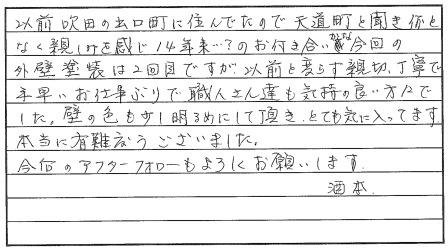 以前吹田の出口町に住んでたので天道町と聞き何と
なく親しみを感じ14年来…?のお付き合いかな 今回の
外壁塗装は2回目ですが、以前と変らず親切、丁寧で
手早いお仕事ぶりで職人さん達も気持の良い方々で
した。壁の色も少し明るめにして頂き、とても気に入ってます
本当に有難うございました。
今后のアフターフォローもよろしくお願いします.
酒本.